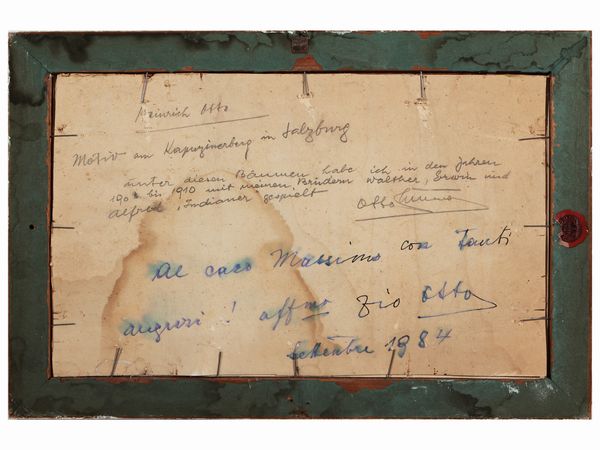 Heinrich Otto
Motiv am Kapuzinerberg in Salzburg
unter diesen Bäumen habe ich in den Jahren
190 bis 1910 mit meinen Brüdern Walther, Erwin und
Alfred "Indianer gespielt
Otto
Al caro Massimo con tanti
auguri! affmo Zio Otto
Settembre 1984